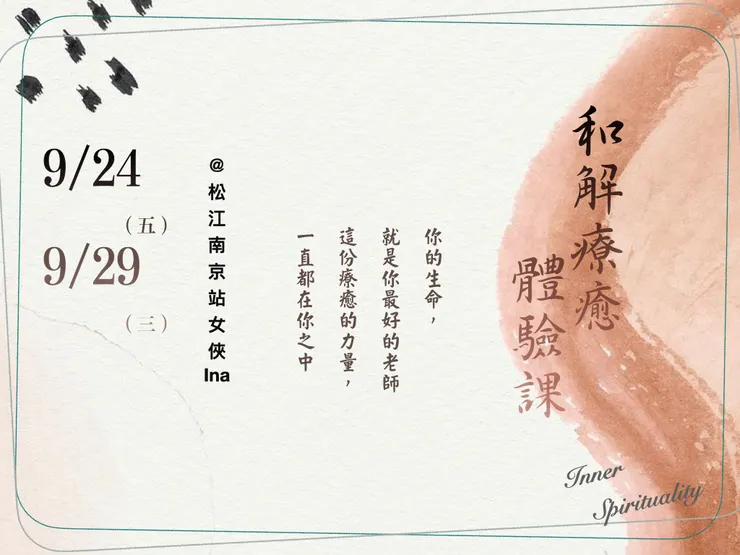 和解療癒
體驗課
你的生命，
就是你最好的老師
這份療癒的力量，
一直都在你之中
@松江南京站女俠Ina
9/24
（五）
9/29
（三）
Inner
Spirituality